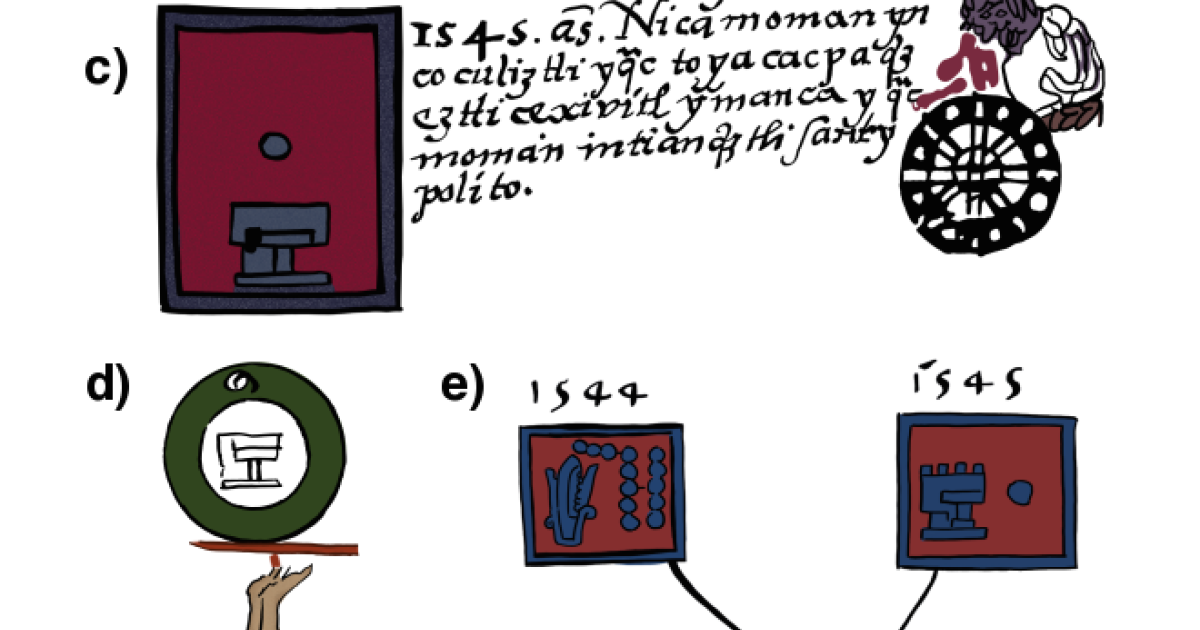 c)
1545. as̄. Nicā moman yn
cocoliztli yq̄c toyacacpa q̄z
eztli cexivitl ȳmancā y q̄c
moman in tianq̄ztli sant y
polito.
d)
e)
1544
1545